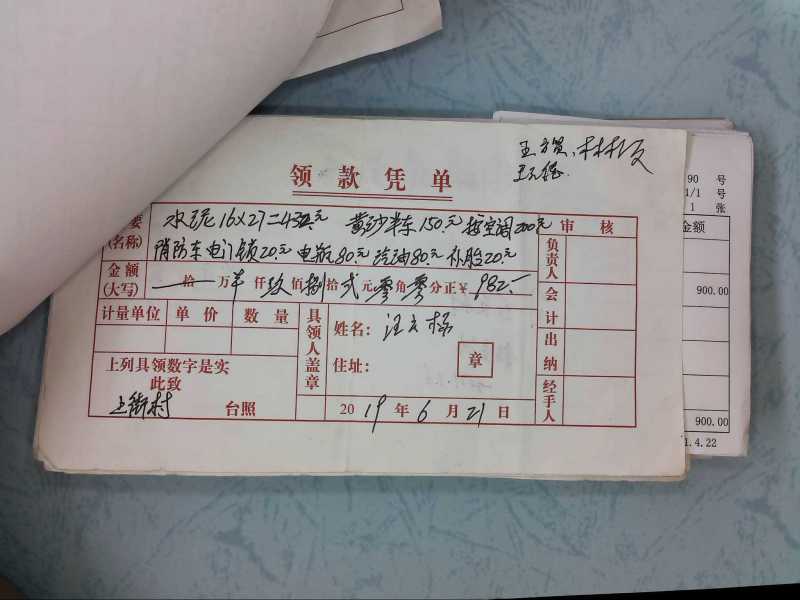 王方贵、林林友
领款凭单
要 水泥16×27=432元 黄沙半车150元 接空调200元 审核
(名称) 消防车电门锁20元 电瓶80元 汽油80元 补胎20元 负责人
金额 (大写) 拾万 仟玖佰捌拾贰元零角零分正¥982.— 会计
计量单位 单价 数量 具领人盖章 姓名: 汪立杨 出纳
上列具领数字是实 住址: 章
此致 经手人
上街村 台照 2019年6月21日
90 号
1/1 号
1 张
金额
900.00
900.00
1.4.22